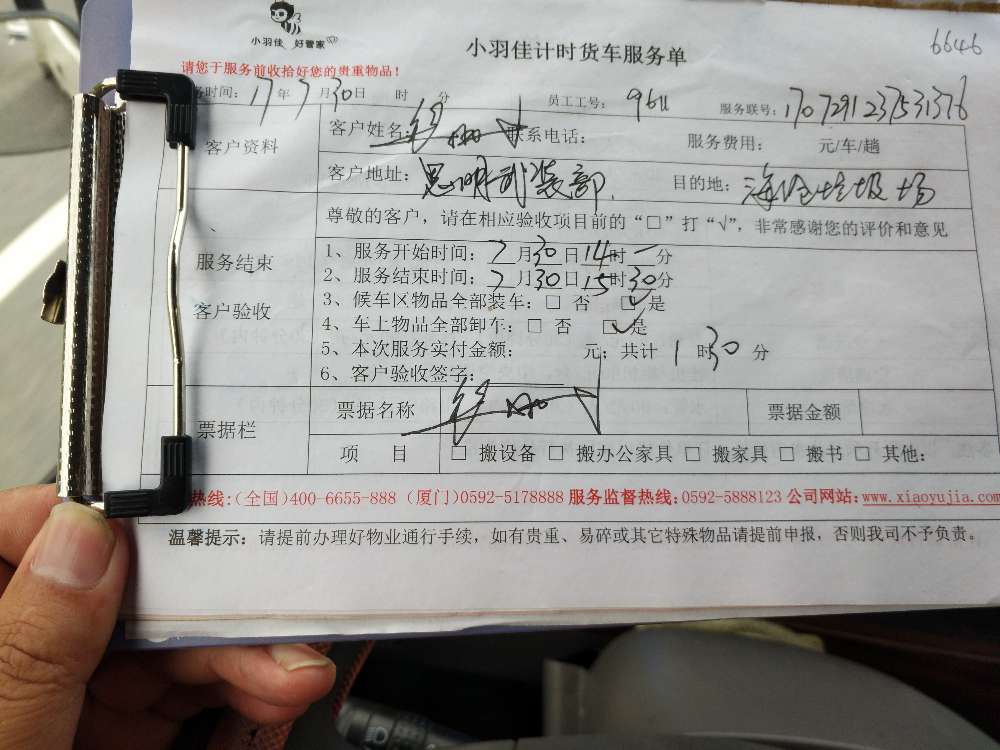 小羽佳 好管家
小羽佳计时货车服务单
6646
请您于服务前收拾好您的贵重物品！
务时间：17年7月30日 时 分 员工工号：9611 服务联号：1707291237531376
客户资料
客户姓名： 联系电话： 服务费用： 元/车/趟
客户地址：思明武装部 目的地：海沧垃圾场
服务结束
客户验收
尊敬的客户，请在相应验收项目前的“□”打“√”，非常感谢您的评价和意见
1、服务开始时间：7月30日14时一分
2、服务结束时间：7月30日15时30分
3、候车区物品全部装车：□ 否 □ 是
4、车上物品全部卸车：□ 否 □ 是
5、本次服务实付金额： 元；共计 1 时30 分
6、客户验收签字：
票据栏
票据名称 票据金额
项 目 □ 搬设备 □ 搬办公家具 □ 搬家具 □ 搬书 □ 其他：
热线:(全国)400-6655-888 (厦门)0592-5178888 服务监督热线:0592-5888123 公司网站:www.xiaoyujia.com
温馨提示：请提前办理好物业通行手续，如有贵重、易碎或其它特殊物品请提前申报，否则我司不予负责。